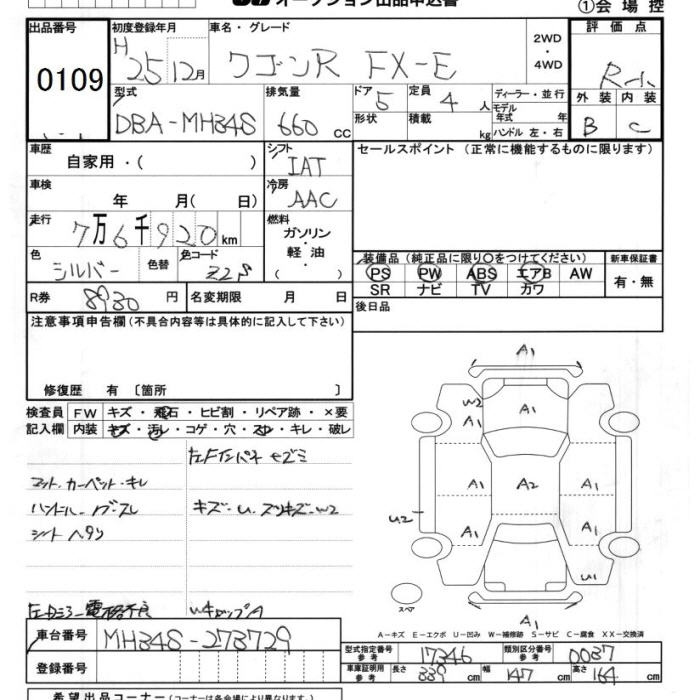 オークション出品申込書
①会場控
出品番号 初度登録年月 車名・グレード 評価点
0109 H 25 12月 ワゴンR FX-E 2WD・4WD R小
型式 排気量 ドア 定員 ディーラー・並行 外装 内装
DBA-MH34S 660 cc 5 4人 モデル年式 年 B C
形状 積載 kg ハンドル 左・右
車歴 シフト セールスポイント(正常に機能するものに限ります)
自家用・( ) IAT
車検 冷房
年 月( 日) AAC
走行 燃料
7万6千920km ガソリン・軽油・
色 色替 色コード 装備品(純正品に限り○をつけてください) 新車保証書
シルバー Z2S PS PW ABS エアB AW 有・無
SR ナビ TV カワ
R券 8930円 名変期限 月 日 後日品
注意事項申告欄(不具合内容等は具体的に記入して下さい)
修復歴 有 〔箇所 〕
検査員 FW キズ・飛石・ヒビ割・リペア跡・×要
記入欄 内装 キズ・汚レ・コゲ・穴・スレ・キレ・破レ
左Fインパネ キズミ
マット、カーペット・キレ
ハンドル・ノブ・スレ キズ・U、スリキズ・W2
シート ヘタリ
左Dミラー電格不良
A1
W2
A1
A1
A1
A2
A1
U2
A1
A1
U1
A1
スペア
A-キズ E-エクボ U-凹み W-補修跡 S-サビ C-腐食 XX-交換済
車台番号 MH34S-273729
登録番号
型式指定番号 参考 17346 類別区分番号 参考 0037
車庫証明用 参考 長さ 339cm 幅 147cm 高さ 164cm
希望出品コーナー(コーナーは各会場により異なります。)